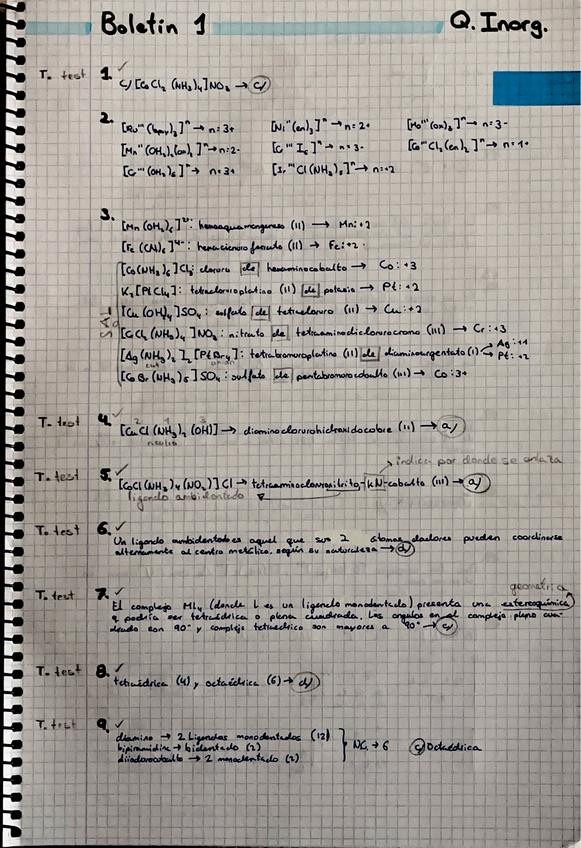 Boletin 1 Q. Inorg.
T. test 1. ✓
c/ [CoCl₂ (NH₃)₄]NO₃ → c/
2. [Ru"(bipy)₃]ⁿ → n=3+ [Ni"(en)₃]ⁿ → n=2+ [Mo"'(ox)₃]ⁿ → n=3-
[Mn"(OH₂)₂(ox)₂]ⁿ → n=2- [Cr"' I₆]ⁿ → n=3- [Co"'Cl₂(en)₂]ⁿ → n=1+
[Cr"'(OH₂)₆]ⁿ → n=3+ [Ir"'Cl(NH₃)₅]ⁿ → n=+2
3.
[Mn(OH₂)₆]²⁺: hexaaquamanganeso (II) → Mn:+2
[Fe(CN)₆]⁴⁻: hexacianuro ferrato (II) → Fe:+2
SAL
[Co(NH₃)₆]Cl₃: cloruro de hexaminocobalto → Co:+3
K₂[PtCl₄]: tetracloruroplatino (II) de potasio → Pt:+2
[Cu(OH)₄]SO₄: sulfato de tetracloruro (II) → Cu:+2
[CrCl₂(NH₃)₄]NO₃: nitrato de tetraaminodiclorurocromo (III) → Cr:+3
[Ag(NH₃)₂]₂[PtBr₄]: tetrabromuroplatino (II) de diaminoargentato(I) → Ag:+1
Pt:+2
[CoBr(NH₃)₅]SO₄: sulfato de pentabromorocobalto (III) → Co:3+
T. test 4. ✓
[CuCl(NH₃)₂(OH)] → diaminoclorurohidroxidocobre (II) → a/
neutro
indica por donde se enlaza
T. test 5. ✓
[CoCl(NH₃)₄(NO₂)]Cl → tetraaminocloruronitrito-kN-cobalto (III) → a/
ligando ambidentado
T. test 6. ✓
Un ligando ambidentado es aquel que sus 2 átomos dadores pueden coordinarse
alternamente al centro metálico, según su naturaleza → d/
geometría
T. test 7. ✓
El complejo ML₄ (donde L es un ligando monodentado) presenta una estereoquímica
q podría ser tetraédrica o plana cuadrada. Los ángulos en el complejo plano cua-
drado son 90° y complejo tetraédrico son mayores a 90° → c/
T. test 8. ✓
tetraédrica (4), octaédrica (6) → d/
T. test 9. ✓
diamino → 2 Ligandos monodentados (12)
bipiramidina → bidentado (2) NC → 6 c/ Octaédrica
diiodorocobalto → 2 monodentado (2)